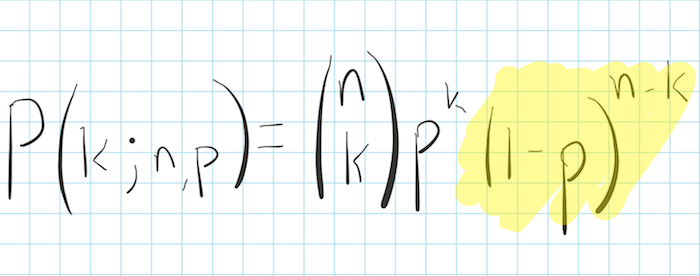 P(k;n,p)=(n k)p^k(1-p)^{n-k}